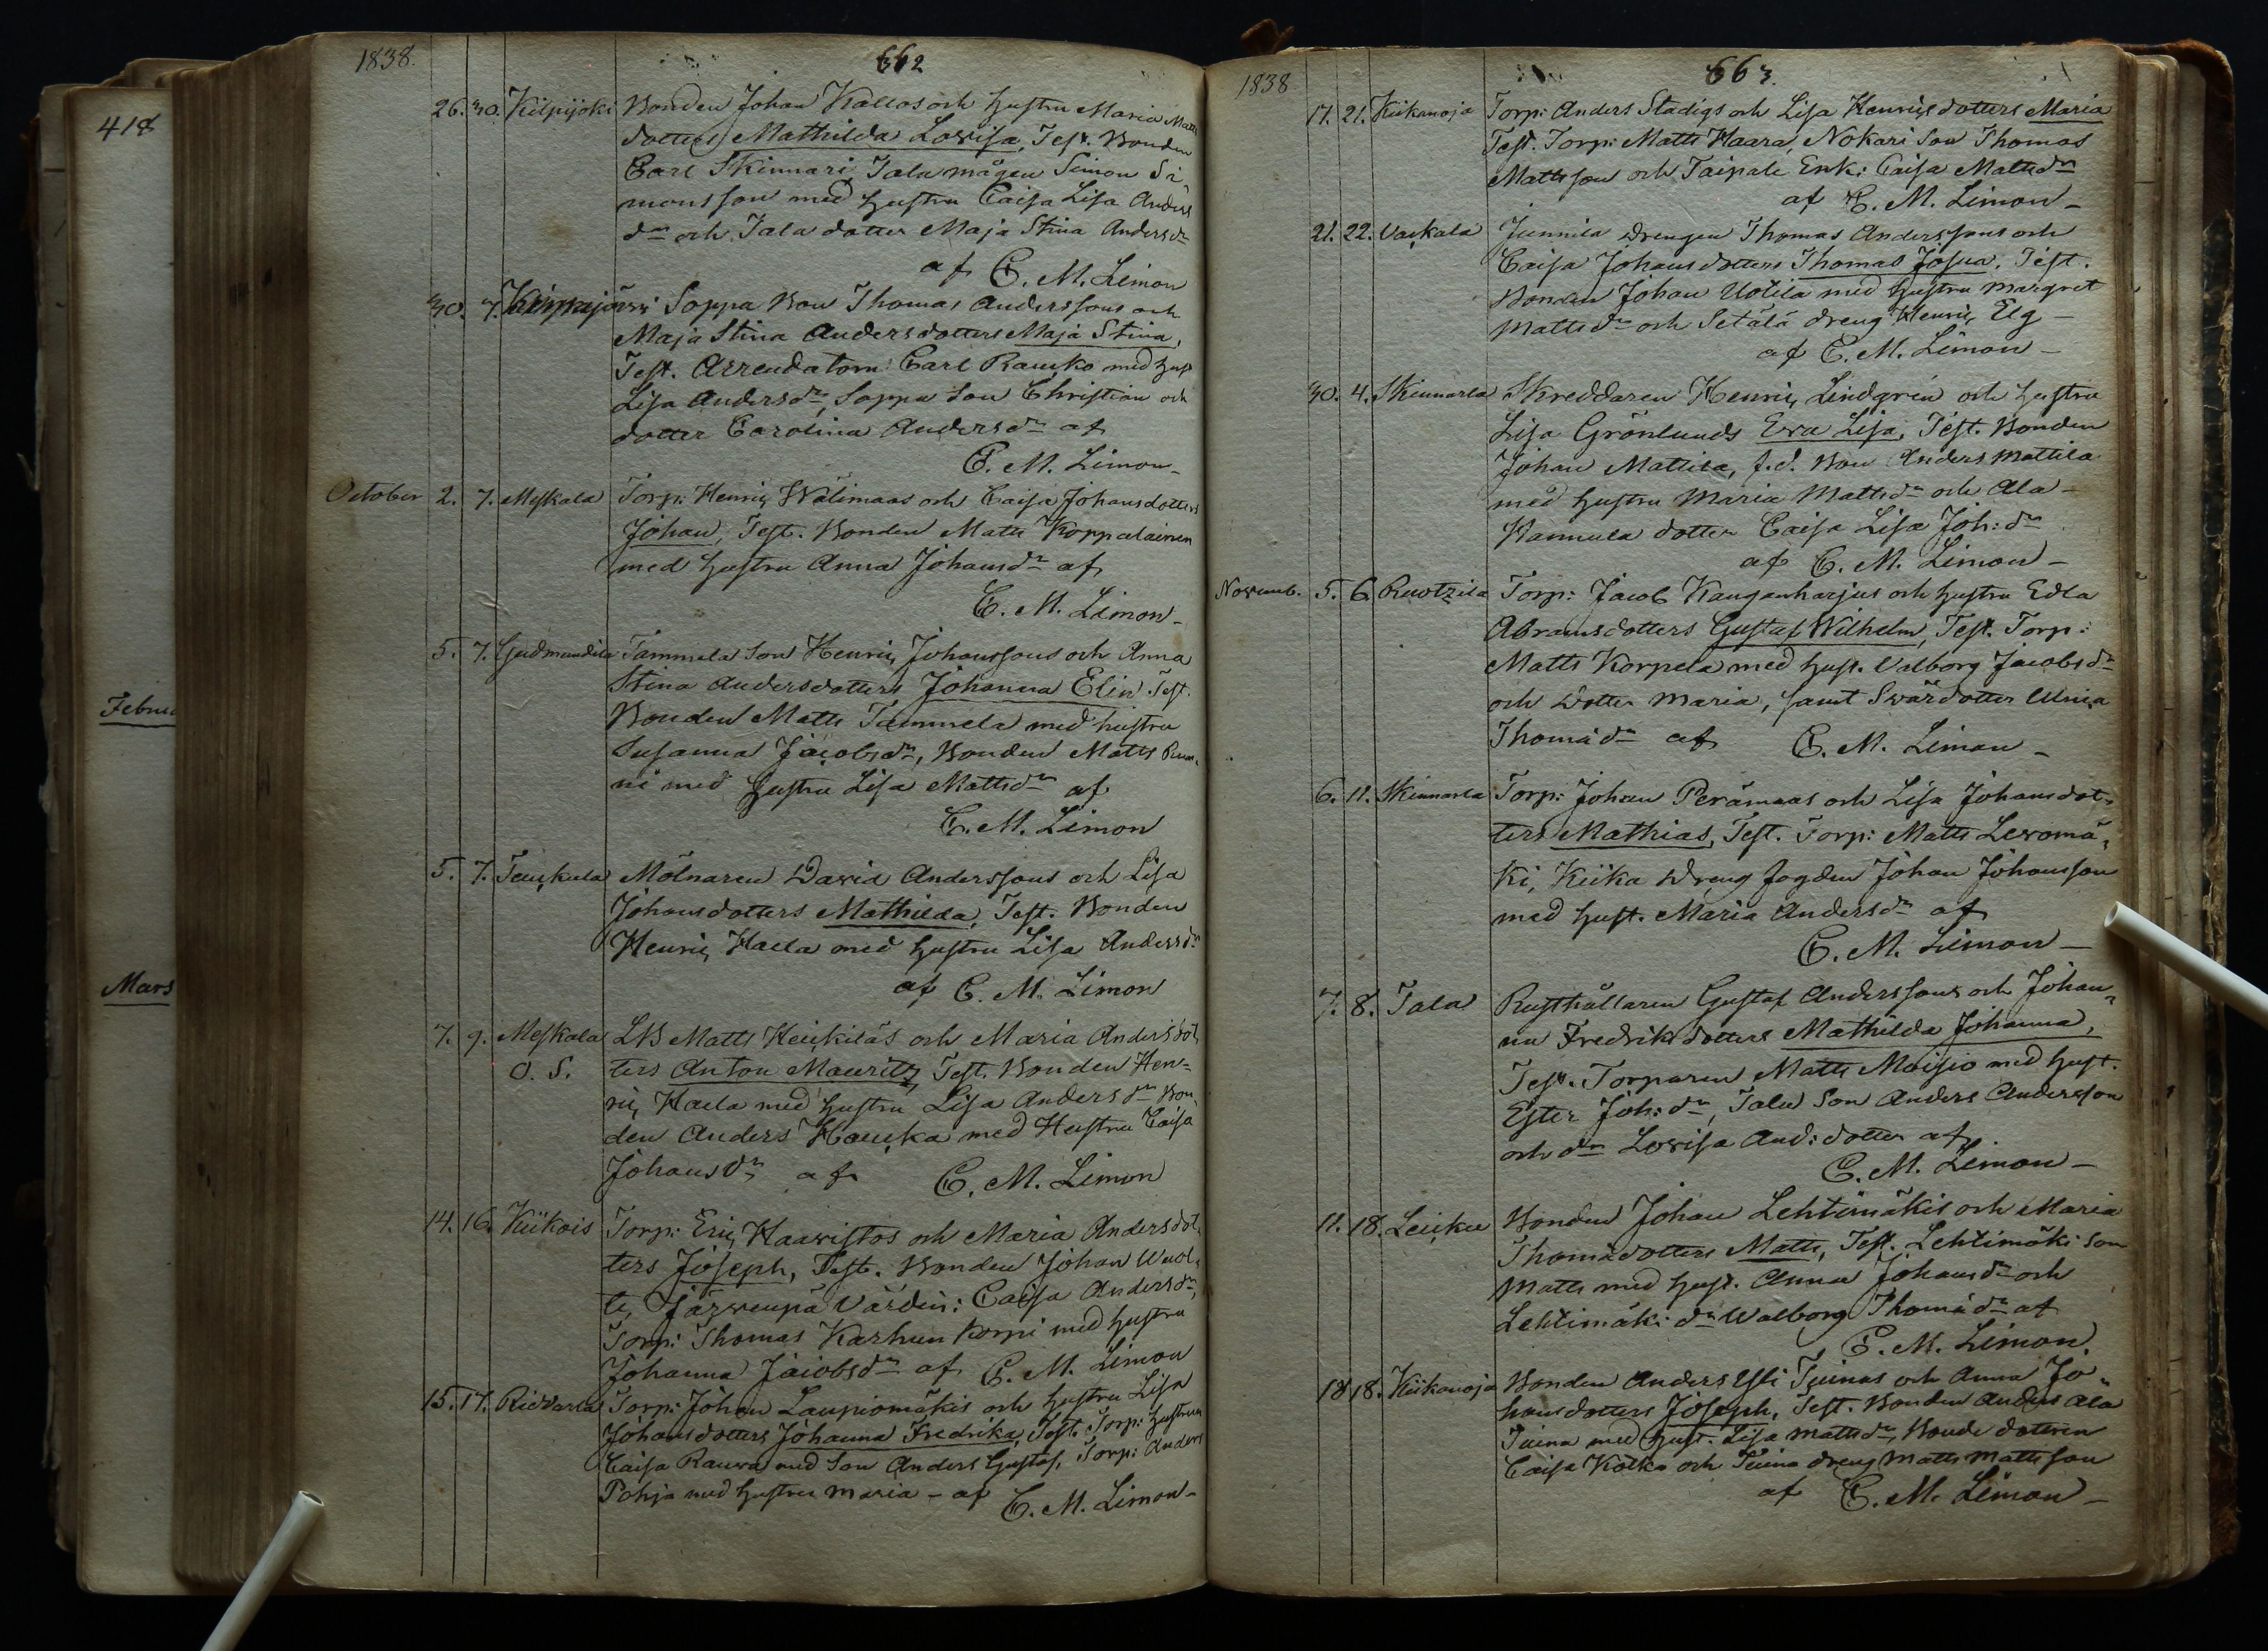 418
Februa
Mars
1838.
662
26. 30. Kilpijoki Bonden Johan Kallas och hustru Maria Matts
dotters Mathilda Lovisa, Test. Bonden
Carl Skinnari, Jala mågen Simon Si
monsson med hustru Caisa Lisa Anders
dr och Jala dotter Maja Stina Andersdr
af C. M. Limon
30. 7. Soppa Bon Thomas Anderssons och
Maja Stina Andersdotters Maja Stina,
Test. Arrendatorn Carl Rauko med hust
Lisa Andersdr, Soppa Son Christian och
dotter Carolina Andersdr af
C. M. Limon
October 2. 7. Meskala Torp: Henric Wälimaas och Caisa Johansdotters
Johan, Test. Bonden Matts Koppalainen
med hustru Anna Johansdr af
C. M. Limon
5. 7. Gudmundila Tammela Son Henric Johanssons och Anna
Stina Andersdotters Johanna Elin. Test.
Bonden Matts Tammela med hustru
Susanna Jacobsdr, Bonden Matts
ni med hustru Lisa Mattsdr af
C. M. Limon
5. 7. Mölnaren David Anderssons och Lisa
Johansdotters Mathilda, Test. Bonden
Henric Haela med hustru Lisa Andersdr
af C. M. Limon
7. 9. Meskala LB Matts Heickiläs och Maria Andersdot
O. S. ters Anton Mauritz, Test. Bonden Hen=
ric Haela med hustru Lisa Andersdr Bon
den Anders Haucka med Hustru Caisa
Johansdr af C. M. Limon
14. 16. Kiikois Torp: Eric Haavistos och Maria Andersdot
ters Joseph, Test. Bonden Johan Wuol
te, Järvenpä Värdin: Caisa Andersdr,
Torp: Thomas Karhun korpi med hustru
Johanna Jacobsdr af C. M. Limon
15. 17. Ridvala Torp: Johan Laupiomäkis och hustru Lisa
Johansdotters Johanna Fredrika, Test. Torp: hustrun
Caisa Rauva med Son Anders Gustaf, Torp: Anders
Pohja med hustru Maria - af C. M. Limon
1838
663.
17. 21. Kiikanoja Torp: Anders Stadigs och Lisa Henricsdotters Maria
Test. Torp: Matts Haara, Nokari Son Thomas
Mattsson och Taipale Enk: Caisa Mattsdr
af C. M. Limon
21. 22. Vackala Junnila Drengen Thomas Anderssons och
Caisa Johansdotters Thomas Josua, Test.
Bonden Johan Uotila med hustru Margret
Mattsdr och Setälä dreng Henric Elg
af C. M. Limon
30. 4. Skinnarla Skreddaren Henric Lindgren och hustru
Lisa Grönlunds Eva Lisa, Test. Bonden
Johan Mattila, f.d. Bon Anders Mattila
med hustru Maria Mattsdr och Ala
Hannula dotter Caisa Lisa Joh:dr
af C. M. Limon
Novemb. 5. 6. Ruotzila Torp: Jacob Kanganharjus och hustru Edla
Abramsdotters Gustaf Wilhelm, Test. Torp:
Matts Korpela med hust. Valborg Jacobsdr
och Dotter Maria, samt Swärdotter Ulrica
Thomædr af C. M. Limon
6. 11. Skinnarla Torp: Johan Perämaas och Lisa Johansdot-
ters Mathias, Test. Torp: Matts Levomä-
ki, Kiika Dreng fogden Johan Johansson
med hust. Maria Andersdr af
C. M. Limon
7. 8. Tala Rusthållaren Gustaf Anderssons och Johan-
na Fredriksdotters Mathilda Johanna,
Test. Torparen Matts Moisio med hust.
Ester Joh:dr, Tala Son Anders Andersson
och dr Lovisa And:dotter af
C. M. Limon
11. 18. Leicku Bonden Johan Lehtimäkis och Maria
Thomædotters Matts, Test. Lehtimäki Son
Matts med hust. Anna Johansdr och
Lehtimäki dr Walborg Thomædr af
C. M. Limon.
18 18. Kiikanoja Bonden Anders Yli Tuinas och Anna Jo
hansdotters Joseph, Test. Bonden Anders Ala
Tuina med hust. Lisa Mattsdr, Bonde dottren
Caisa Kolka och Tuina dreng Matts Mattsson
af C. M. Limon